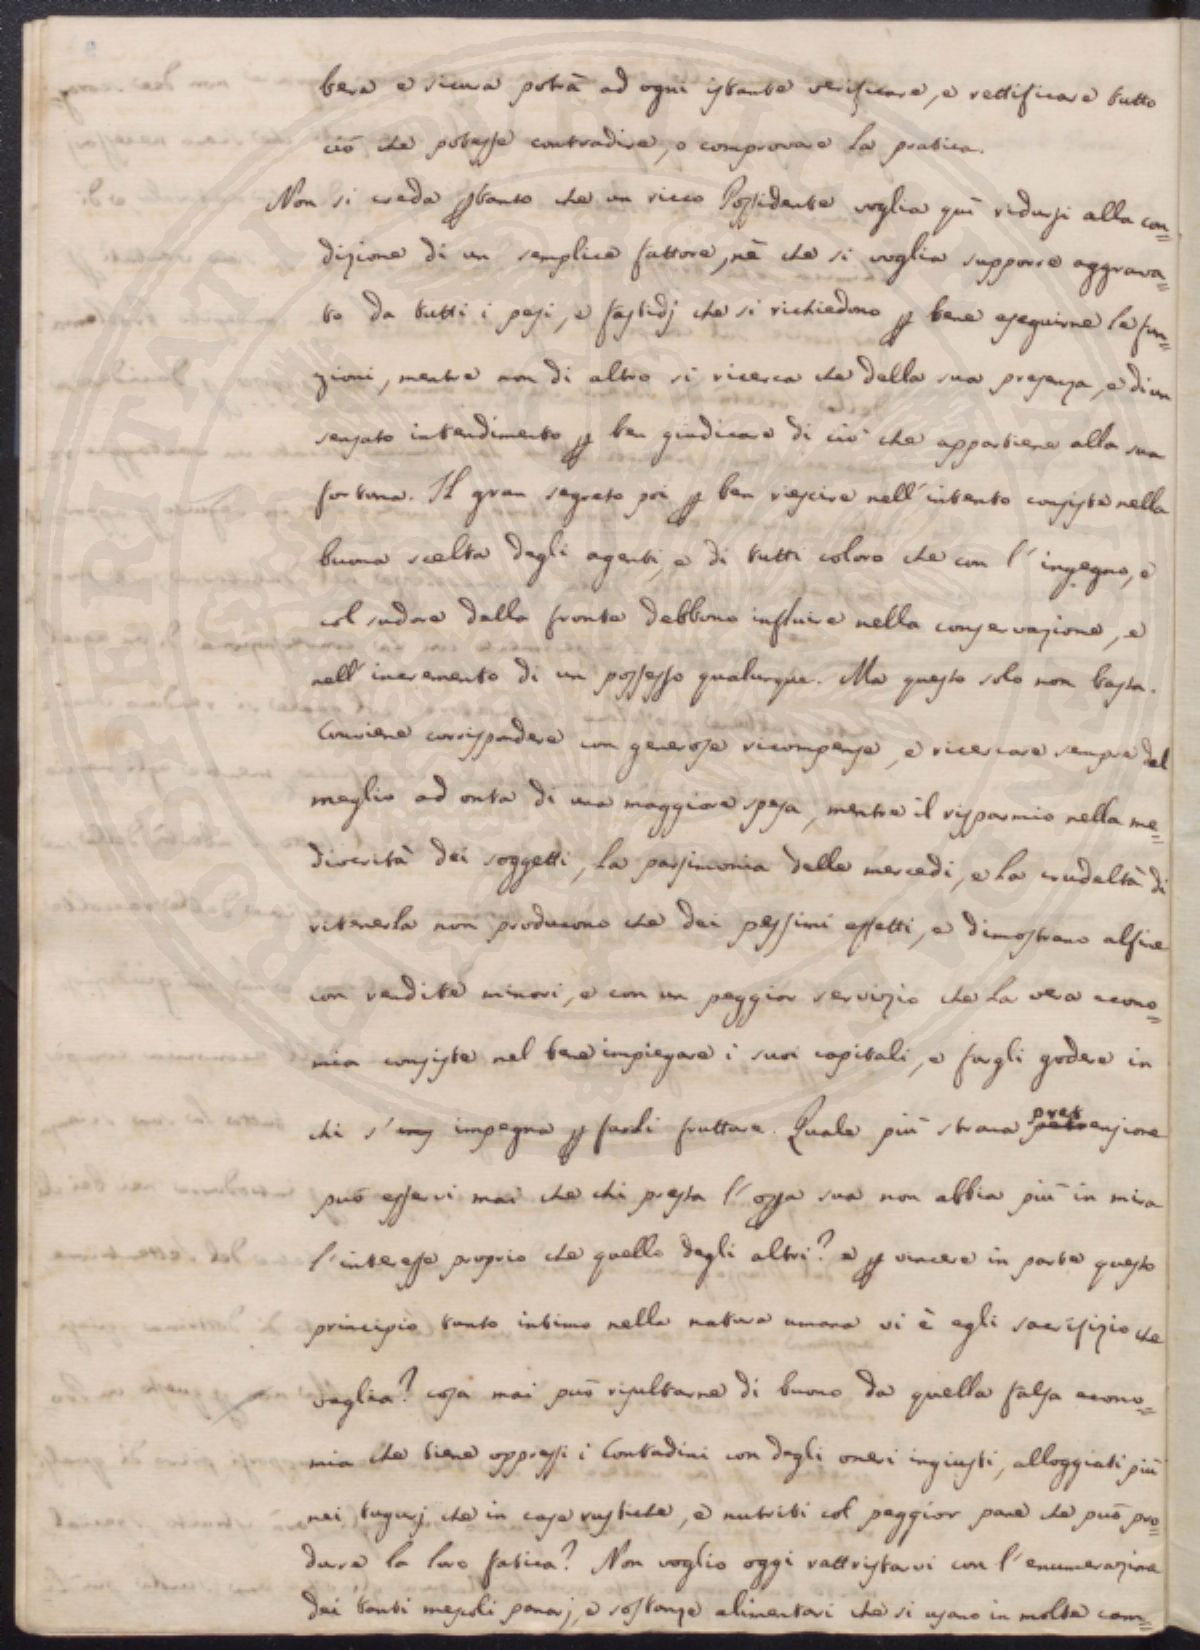 bera e sicura potrà ad ogni istante verificare, e rettificare tutto
ciò che potesse contradire, o comprovare la pratica.
Non si creda ptanto che un ricco Possidente voglia quì ridursi alla con=
dizione di un semplice fattore, nè che si voglia supporre aggrava=
to da tutti i pesi, e fastidj che si richiedono p bene eseguirne le fun=
zioni, mentre non di altro si ricerca che della sua presenza, e di un
sensato intendimento p ben giudicare di ciò che appartiene alla sua
fortuna. Il gran segreto poi p ben riescire nell'intento consiste nella
buona scelta degli agenti, e di tutti coloro che con l'ingegno, e
col sudore della fronte debbono influire nella conservazione, e
nell'incremento di un possesso qualunque. Ma questo solo non basta.
Conviene corrispondere con generose ricompense, e ricercare sempre del
meglio ad onta di una maggiore spesa, mentre il risparmio nella me=
diocrità dei soggetti, la parsimonia delle mercedi, e la crudeltà di
ritenerla non producono che dei pessimi effetti, e dimostrano alfine
con rendite minori, e con un peggior servizio che la vera econo=
mia consiste nel bene impiegare i suoi capitali, e fargli godere in
chi s' impegna p farli fruttare. Quale più strana pretensione
può esservi mai che chi presta l'opra sua non abbia più in mira
l'interesse proprio che quello degli altri? e p vincere in parte questo
principio tanto intimo nella natura umana vi è egli sacrifizio che
vaglia? cosa mai può risultarne di buono da quella falsa econo=
mia che tiene oppressi i Contadini con degli oneri ingiusti, alloggiati più
nei tugurj che in case rustiche, e nutriti col peggior pane che può pro=
durre la loro fatica? Non voglio oggi rattristarvi con l'enumerazione
dei tanti mescoli panarj, e sostanze alimentari che si usano in molte cam=